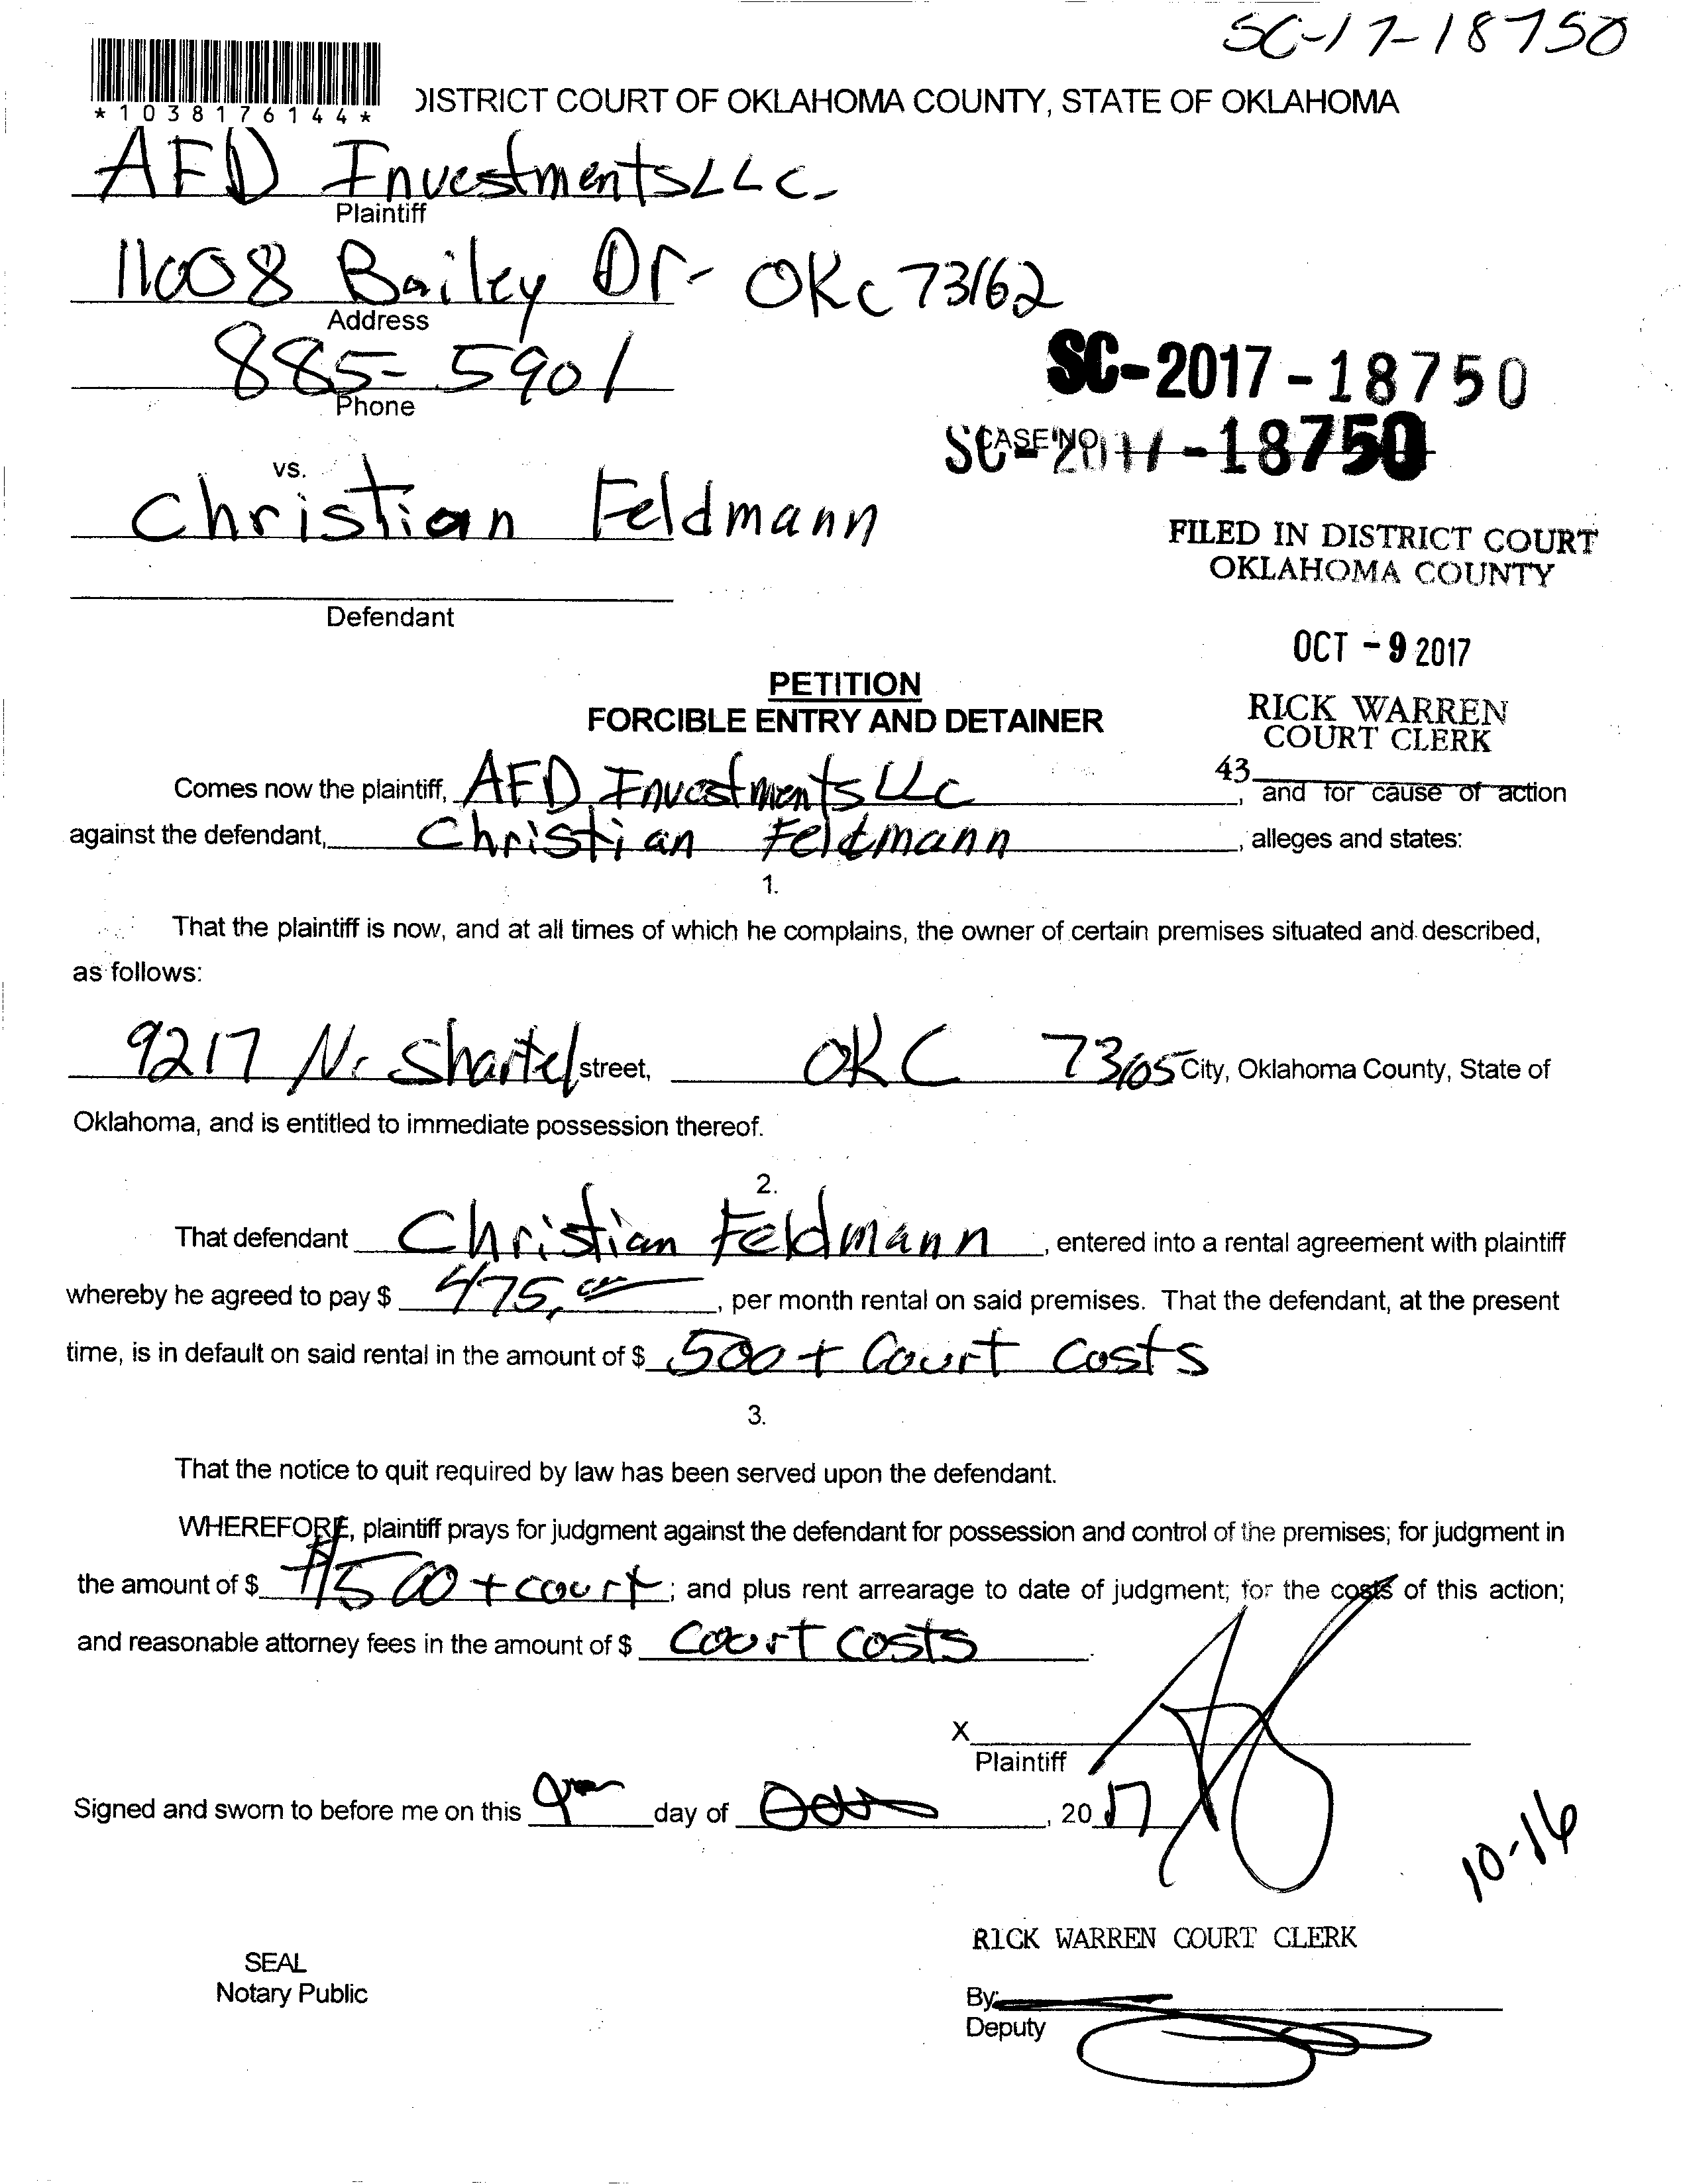 SC-17-18750
*1038176144*
DISTRICT COURT OF OKLAHOMA COUNTY, STATE OF OKLAHOMA
AFD Investments LLC.
Plaintiff
11008 Bailey Dr- OKC 73162
Address
885-5901
Phone
SC-2017-18750
CASE NO.
SC-2017-18750
vs.
Christian Feldmann
FILED IN DISTRICT COURT
OKLAHOMA COUNTY
Defendant
OCT -9 2017
PETITION
FORCIBLE ENTRY AND DETAINER
RICK WARREN
COURT CLERK
43
Comes now the plaintiff, AFD Investments LLC, and for cause of action
against the defendant, Christian Feldmann, alleges and states:
1.
That the plaintiff is now, and at all times of which he complains, the owner of certain premises situated and described,
as follows:
9217 N. Shartel street, OKC 73105 City, Oklahoma County, State of
Oklahoma, and is entitled to immediate possession thereof.
2.
That defendant Christian Feldmann, entered into a rental agreement with plaintiff
whereby he agreed to pay $ 475.00, per month rental on said premises. That the defendant, at the present
time, is in default on said rental in the amount of $ 500 + Court Costs
3.
That the notice to quit required by law has been served upon the defendant.
WHEREFORE, plaintiff prays for judgment against the defendant for possession and control of the premises; for judgment in
the amount of $ $500 + court; and plus rent arrearage to date of judgment; for the costs of this action;
and reasonable attorney fees in the amount of $ Court Costs.
X
Plaintiff
Signed and sworn to before me on this 9 day of Oct, 2017
10-16
RICK WARREN COURT CLERK
SEAL
Notary Public
By:
Deputy